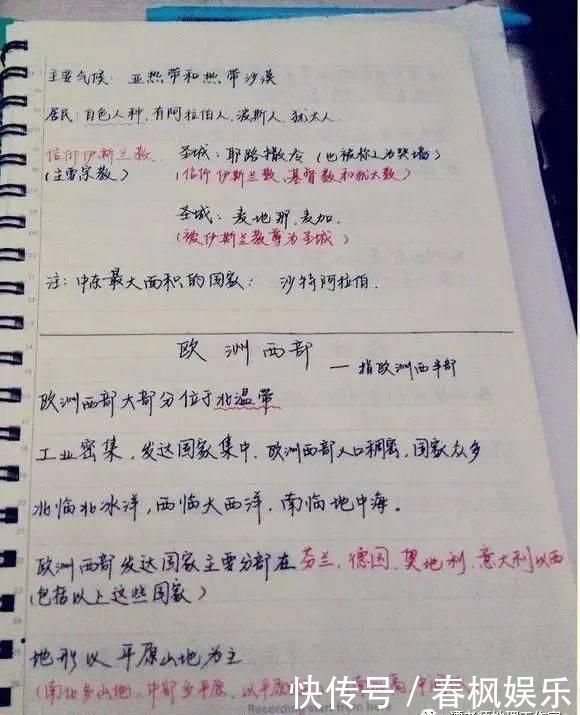 主要气候：亚热带和热带沙漠
居民：白色人种，有阿拉伯人、波斯人、犹太人.
信仰伊斯兰教 圣城：耶路撒冷（也被称之为哭墙）
（主要宗教） （信仰伊斯兰教、基督教和犹太教）
圣城：麦地那、麦加.
（被伊斯兰教尊为圣城）
注：中东最大面积的国家： 沙特阿拉伯.
欧洲西部
—指欧洲西半部
欧洲西部大部分位于北温带
工业密集，发达国家集中，欧洲西部人口稠密，国家众多
北临北冰洋，西临大西洋，南临地中海。
欧洲西部发达国家主要分部在芬兰、德国、奥地利、意大利以西
（包括以上这些国家）
地形以平原山地为主
（南北多山地，中部多平原，以平原
快传号／春枫娱乐
Recording start from he